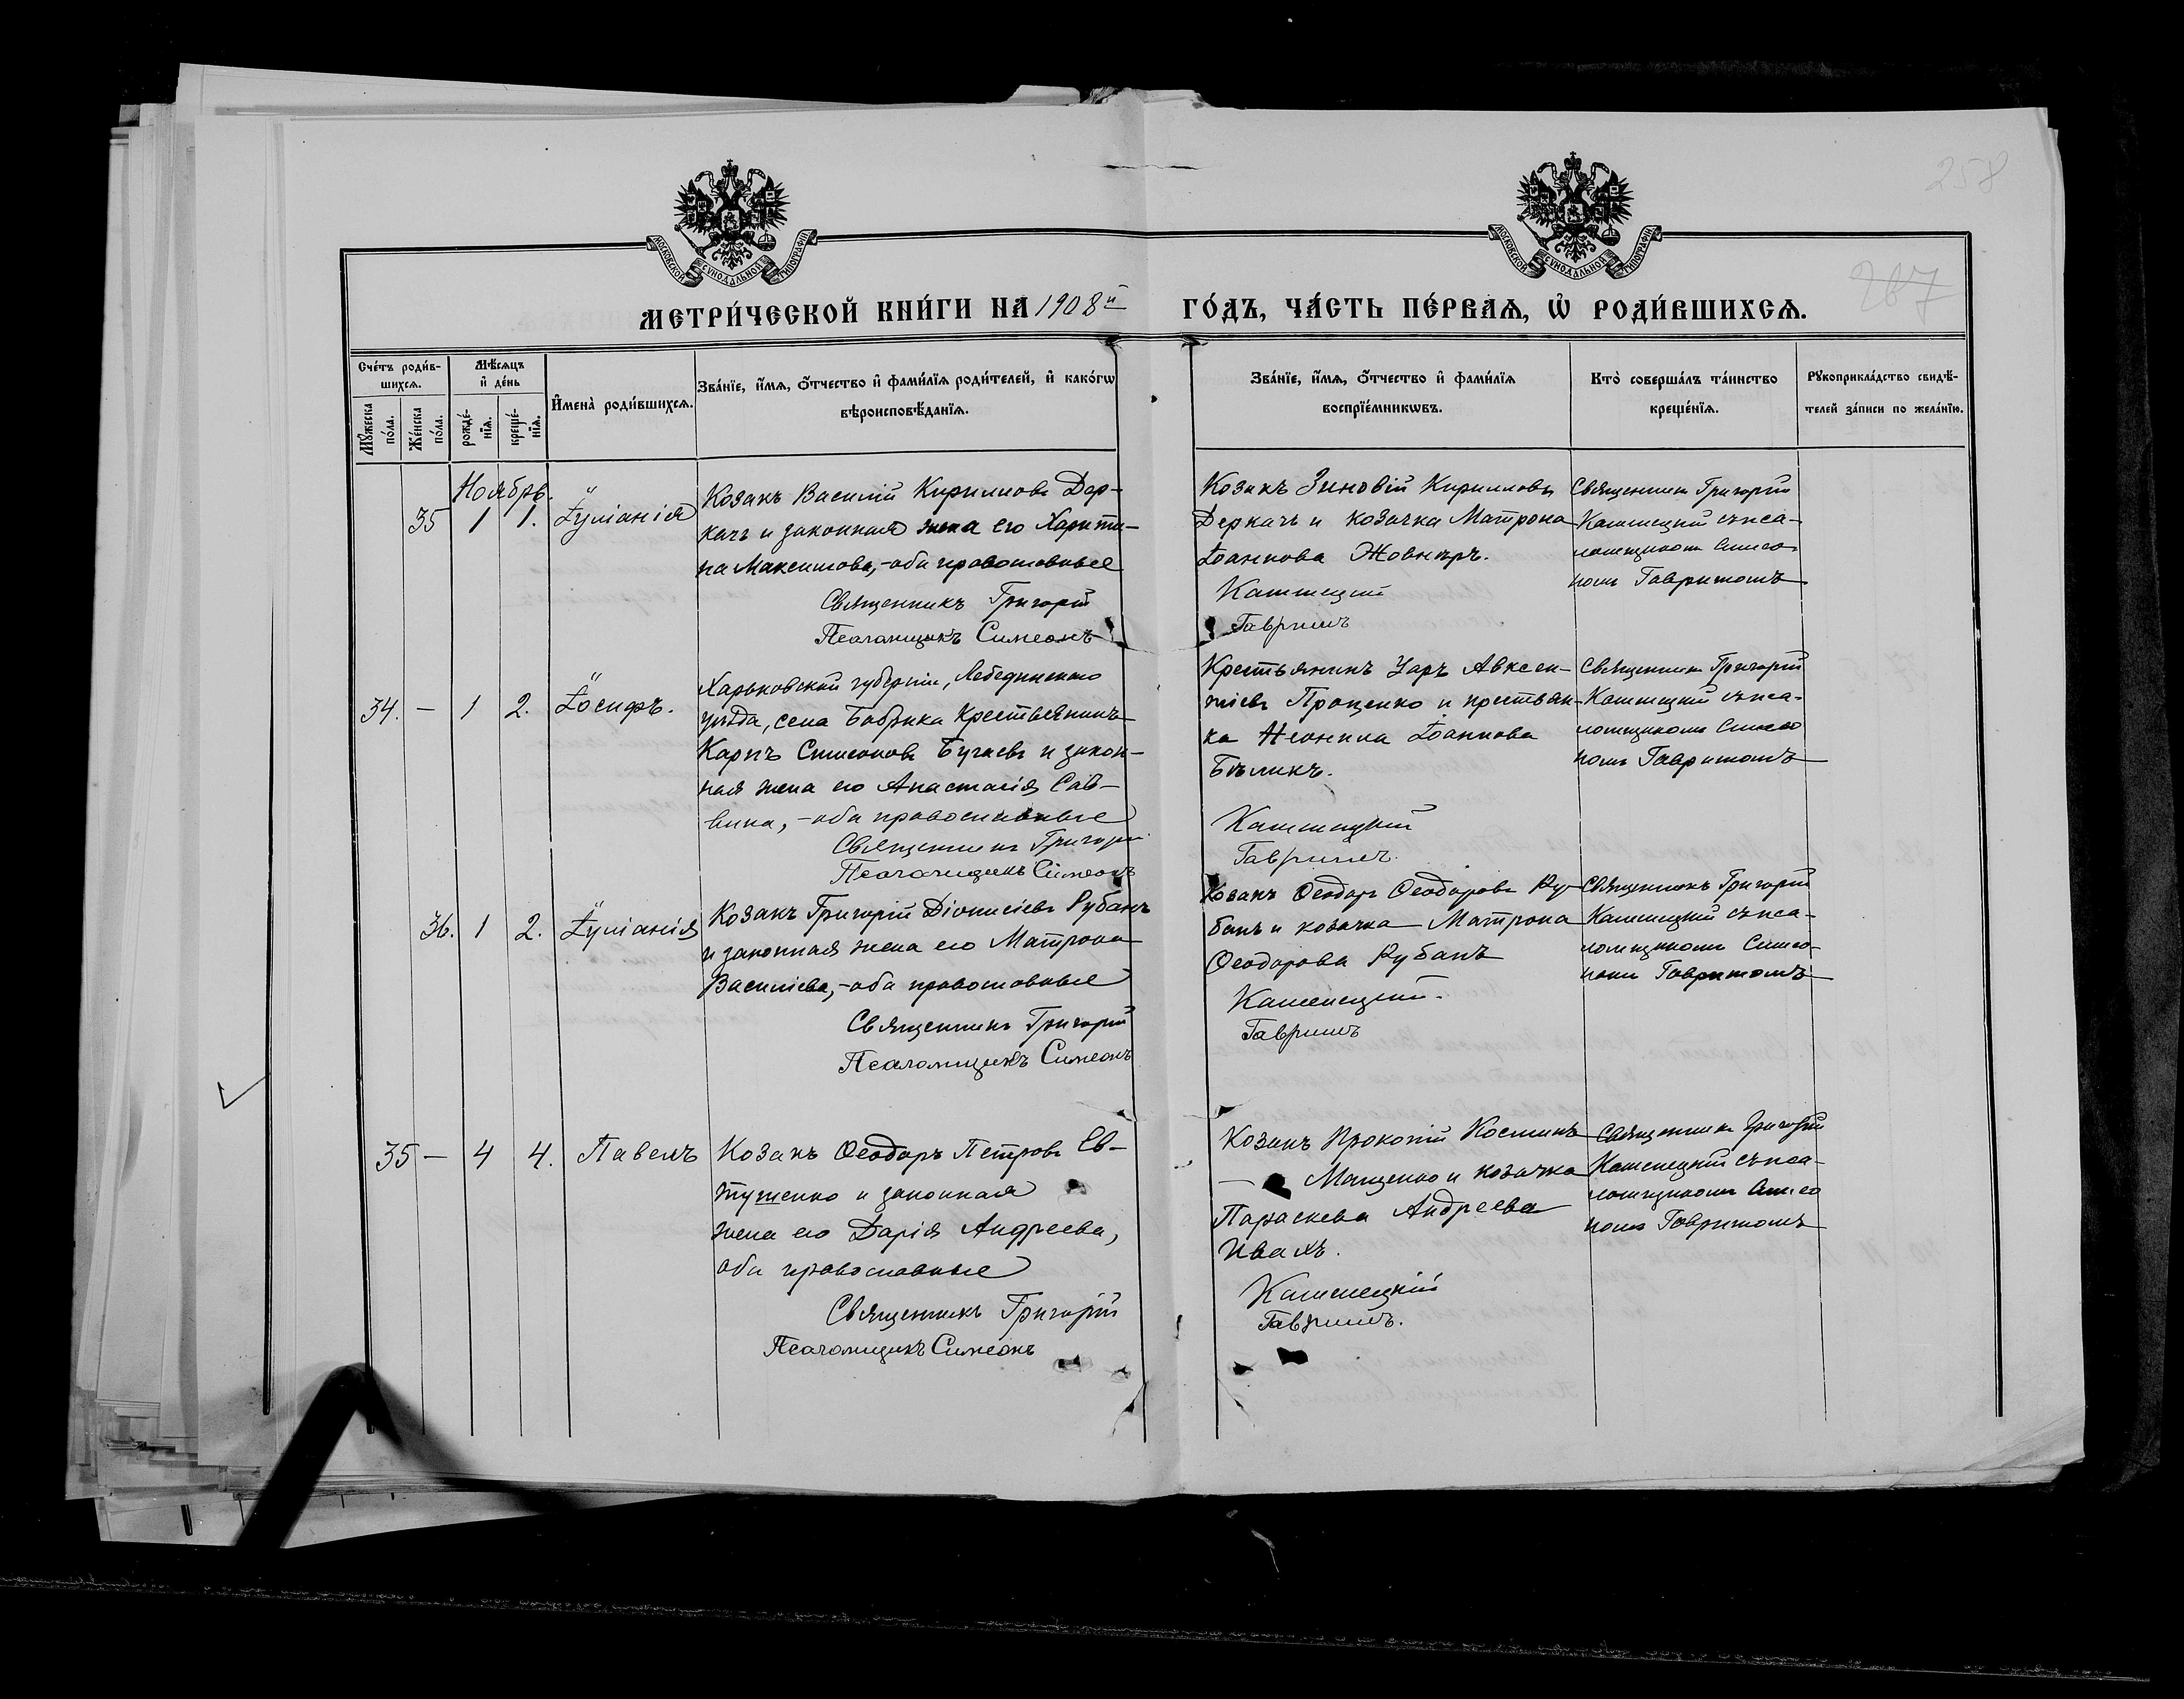 258
267
МОСКОВСКОЙ СУНОДАЛЬНОЙ ТИПОГРАФІИ
МОСКОВСКОЙ СУНОДАЛЬНОЙ ТИПОГРАФІИ
МЕТРИ́ЧЕСКОЙ КНИ́ГИ НА 1908й ГО́ДЪ, ЧА́СТЬ ПЕ́РВАѦ, Ѡ҆ РОДИ́ВШИХСѦ.
Сче́тъ роди́в-
шихсѧ.
Мꙋ́жеска
по́ла.
Же́нска
по́ла.
Мѣ́сѧцъ
и҆ де́нь
рожде́-
нїѧ.
креще́-
нїѧ.
И҆мена̀ роди́вшихсѧ.
Зва́нїе, и҆́мѧ, ѻ҆́тчество и҆ фами́лїѧ роди́телей, и҆ како́гѡ
вѣроисповѣ́данїѧ.
Зва́нїе, и҆́мѧ, ѻ҆́тчество и҆ фами́лїѧ
воспрїе́мникѡвъ.
Кто̀ соверша́лъ та́инство
креще́нїѧ.
Рꙋкоприкла́дство свидѣ́-
телей за́писи по жела́нїю.
Ноябрь.
35 1 1. Іуліанія
Козакъ Василій Кирилловъ Дер-
качъ и законная жена его Харити-
на Максимова,-оба православные
Священникъ Григорій
Псаломщикъ Симеонъ
Козакъ Зиновій Кирилловъ
Деркачъ и козачка Матрона
Іоаннова Жовниръ.
Каменецкій
Гавришъ
Священникъ Григорій
Каменецкій съ пса-
ломщикомъ Симео-
номъ Гавришомъ
34. — 1 2. Іосифъ.
Харьковской губерніи, Лебединскаго
уѣзда, села Бобрика крестьянинъ
Карпъ Симеоновъ Бугаевъ и закон-
ная жена его Анастасія Сав-
вина,-оба православные
Священникъ Григорій
Псаломщикъ Симеонъ
Крестьянинъ Уаръ Авксен-
тіевъ Проценко и крестьян-
ка Неонила Іоаннова
Бѣликъ.
Каменецкій
Гавришъ.
Священникъ Григорій
Каменецкій съ пса-
ломщикомъ Симео
номъ Гавришомъ
36. 1 2. Іуліанія
Козакъ Григорій Діонисіевъ Рубанъ
и законная жена его Матрона
Василіева,-оба православные
Священникъ Григорій
Псаломщикъ Симеонъ
Козакъ Ѳеодоръ Ѳеодоровъ Ру-
банъ и козачка Матрона
Ѳеодорова Рубанъ
Каменецкій.
Гавришъ
Священникъ Григорій
Каменецкій съ пса-
ломщикомъ Симео-
номъ Гавришомъ
35 — 4 4. Павелъ
Козакъ Ѳеодоръ Петровъ Ев-
тушенко и законная
жена его Дарія Андреева,
оба православные
Священникъ Григорій
Псаломщикъ Симеонъ
Козакъ Прокопій Косминъ
— Мащенко и козачка
Параскева Андреева
Ивахъ.
Каменецкій
Гавришъ.
Священникъ Григорій
Каменецкій съ пса-
ломщикомъ Симео
номъ Гавришомъ